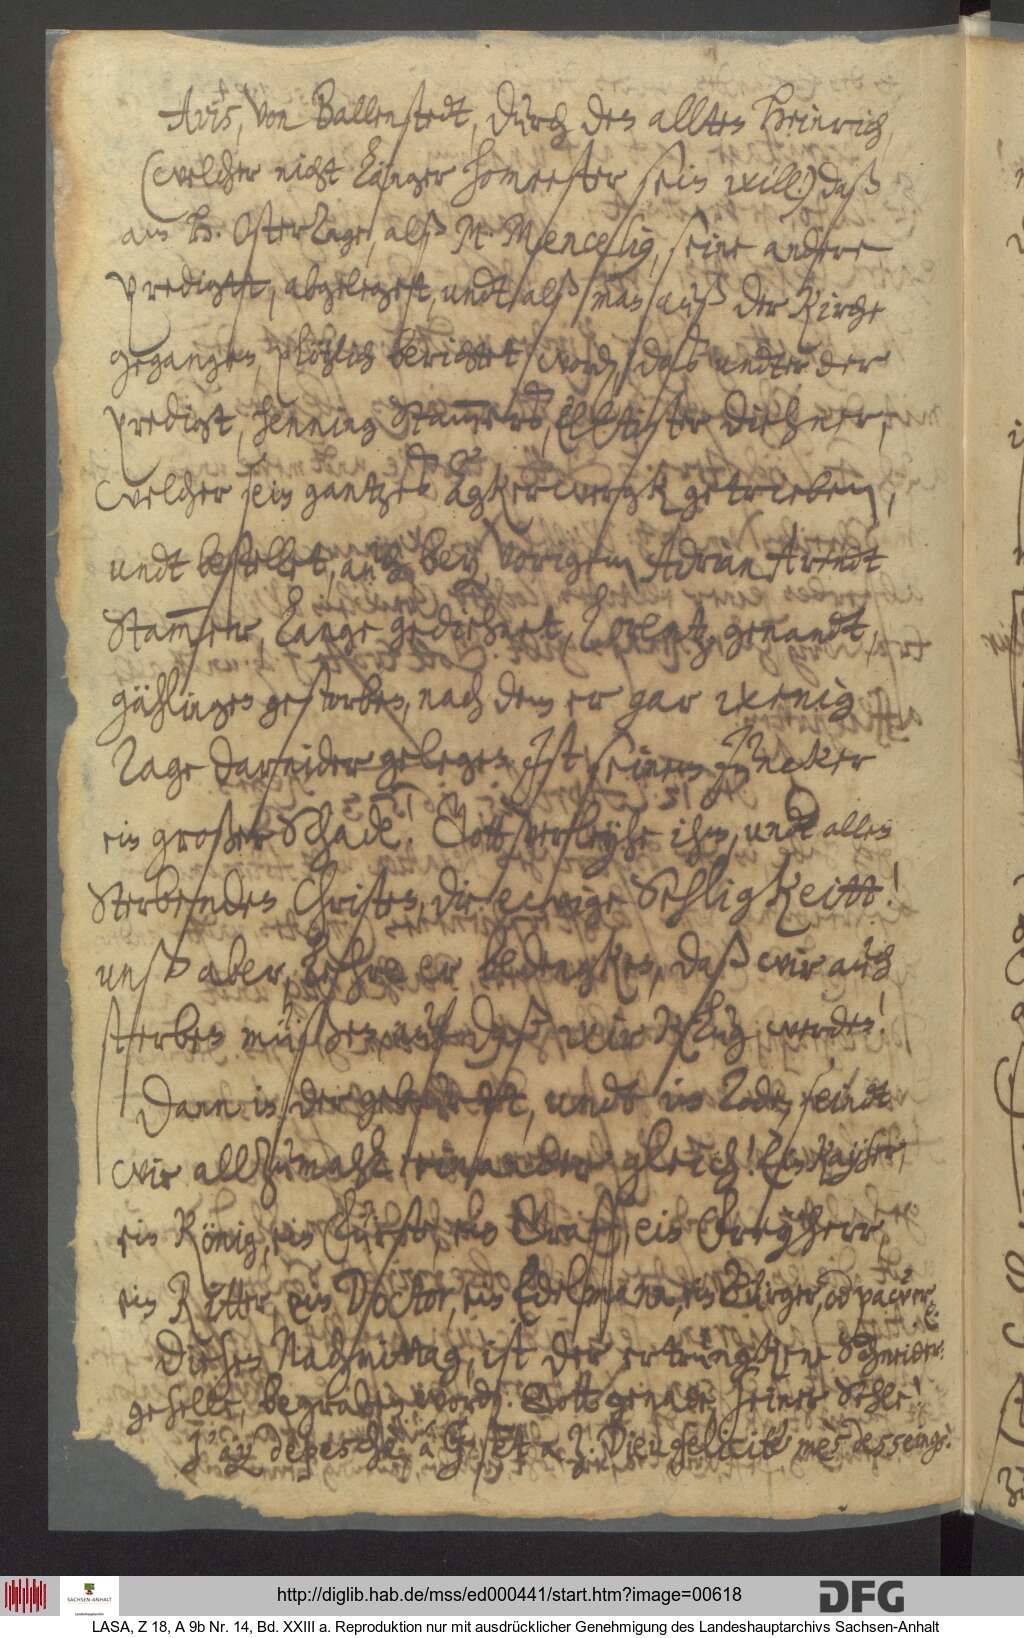 Avis, von Ballenstedt, durch den allten Heinrich,
(welcher nicht länger homeester sein will:) daß
am H. Ostertage, alß M. Mencelig, seine andere
predigtt, abgeleget, undt alß man auß der Kirche
gegangen, plötzlich berichtet word, daß undter der
predigt, Henning Stam̄ers, Elltister diehner,
welcher sein gantzes agkerwergk getrieben,
undt bestellet, auch bey, vorigem Adrian Arendt
Stam̄er, lange gediehnet, genandt,
gähligen gestorben, nach dem er gar wenig
Tage darnider gelegen. Ist seinem Juncker
ein großer Schade! Gott verleyhe ihm, undt allen
Sterbenden Christen, die ewige Sehligkeitt!
unß aber, Lehre er bedengken, daß wir auch
sterben müßen, auf daß wir klug werden!
Dann in der geburtt, undt im Tode, seindt
wir allzumahl einander gleich! Ein Kayser,
ein König, ein Fürst, ein Graff, ein Freyherr,
ein Ritter, ein Doctor, ein Edelmann, ein Bürger, od pawer.
Diesen Nachmittag, ist der ertrungkene Schneider:
geselle, begraben word. Gott genade seiner Sehle!
J'ay depeschè a & a Z. Dieu felicite mes desseings.
http://diglib.hab.de/mss/ed000441/start.htm?image=00618
DFG
SACHSEN-ANHALT
LASA, Z 18, A 9b Nr. 14, Bd. XXIII a. Reproduktion nur mit ausdrücklicher Genehmigung des Landeshauptarchivs Sachsen-Anhalt